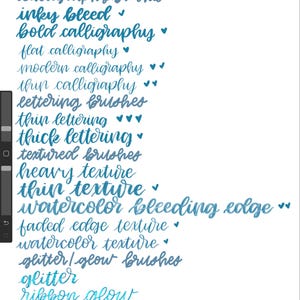 inky bleed ♥
bold calligraphy ♥
flat calligraphy ♥
modern calligraphy ♥♥
thin calligraphy ♥♥
lettering brushes
thin lettering ♥♥♥
thick lettering ♥
textured brushes
heavy texture
thin texture ♥
watercolor bleeding edge ♥♥
faded edge texture ♥
watercolor texture ♥
glitter/glow brushes
glitter
ribbon glow